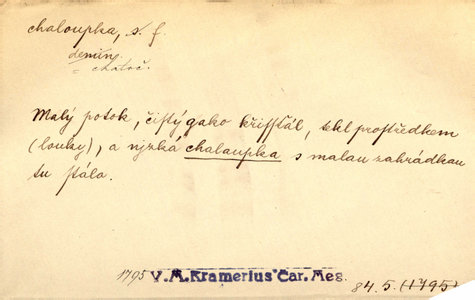 chaloupka, s. f.
demin.
= chatrč.
Malý potok, čistý gako křisstál, tekl prostředkem
(louky), a njzká chalaupka s malau zahrádkau
tu stála.
1795 V. M. Kramerius' Čar. Mes.
84.5. (1795)